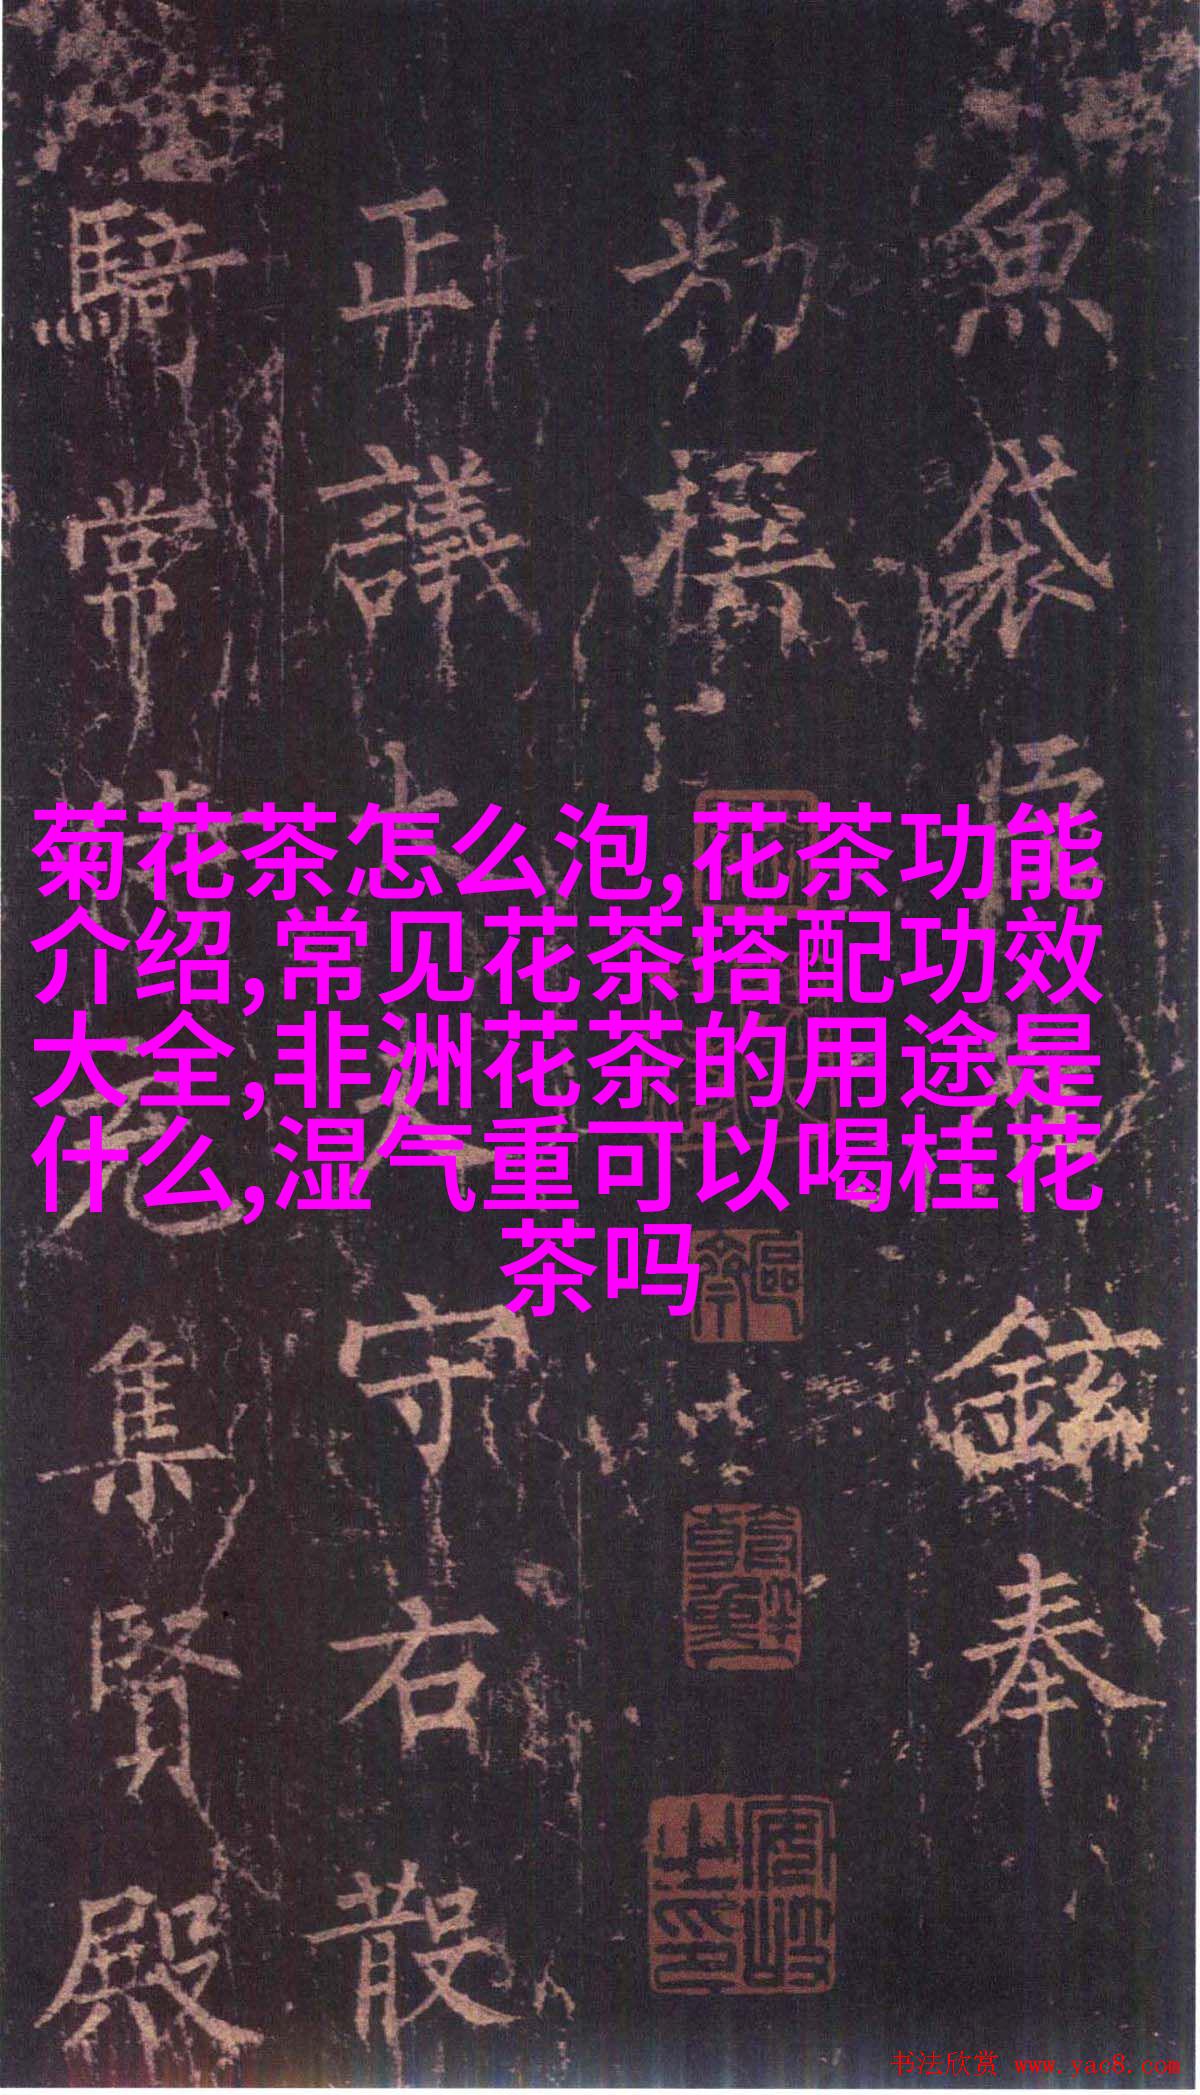 魚袋
奉
勑撰
正議
守右散
騎常
集賢殿
菊花茶怎么泡,花茶功能
介绍,常见花茶搭配功效
大全,非洲花茶的用途是
什么,湿气重可以喝桂花
茶吗
书法欣赏 www.yac8.com